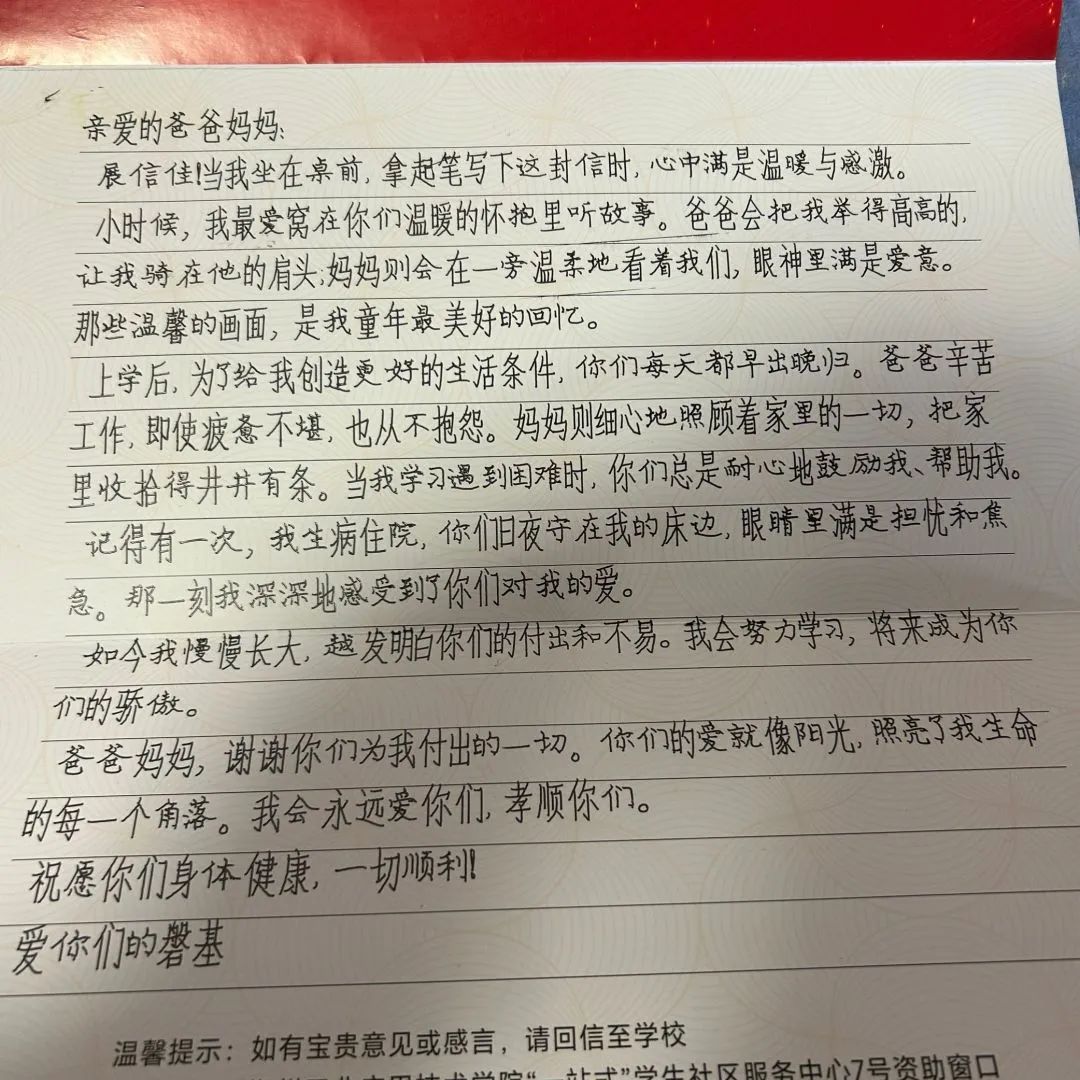 亲爱的爸爸妈妈:
展信佳!当我坐在桌前,拿起笔写下这封信时,心中满是温暖与感激。
小时候,我最爱窝在你们温暖的怀抱里听故事。爸爸会把我举得高高的,
让我骑在他的肩头;妈妈则会在一旁温柔地看着我们,眼神里满是爱意。
那些温馨的画面,是我童年最美好的回忆。
上学后,为了给我创造更好的生活条件,你们每天都早出晚归。爸爸辛苦
工作,即使疲惫不堪,也从不抱怨。妈妈则细心地照顾着家里的一切,把家
里收拾得井井有条。当我学习遇到困难时,你们总是耐心地鼓励我、帮助我。
记得有一次,我生病住院,你们日夜守在我的床边,眼睛里满是担忧和焦
急。那一刻我深深地感受到了你们对我的爱。
如今我慢慢长大,越发明白你们的付出和不易。我会努力学习,将来成为你
们的骄傲。
爸爸妈妈,谢谢你们为我付出的一切。你们的爱就像阳光,照亮了我生命
的每一个角落。我会永远爱你们,孝顺你们。
祝愿你们身体健康,一切顺利!
爱你们的磐基
温馨提示:如有宝贵意见或感言,请回信至学校
技术学院“一站式”学生社区服务中心7号资助窗口